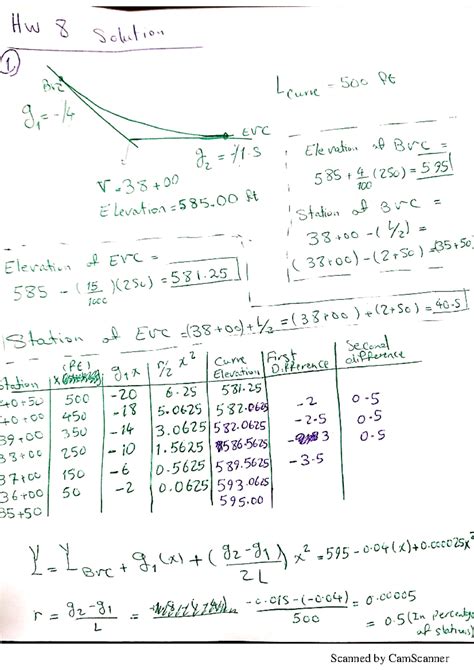 HW 8 Solution
1
BVC
g1 = -4
L curve = 500 ft
EVC
g2 = -1.5
V = 38+00
Elevation = 585.00 ft
Elevation of BVC =
585 + 4/100 (250) = 595
Station of BVC =
38+00 - (L/2) =
(38+00) - (2+50) = (35+50)
Elevation of EVC =
585 - (15/1000)(250) = 581.25
Station of EVC = (38+00) + L/2 = (38+00) + (2+50) = 40.5
Station X (ft) g1x r/2 x² Curve Elevation First Difference Second difference
40+50 500 -20 6.25 581.25
40+00 450 -18 5.0625 582.0625 -2 0.5
39+00 350 -14 3.0625 582.0625 -2.5 0.5
38+00 250 -10 1.5625 586.5625 -3 0.5
37+00 150 -6 0.5625 589.5625 -3.5
36+00 50 -2 0.0625 593.0625
35+50 595.00
Y = Y BVC + g1(x) + (g2-g1 / 2L) x² = 595 - 0.04(x) + 0.000025x²
r = g2-g1 / L = -0.015-(-0.04) / 500 = 0.00005
= 0.5 (In percentage of stations)
Scanned by CamScanner